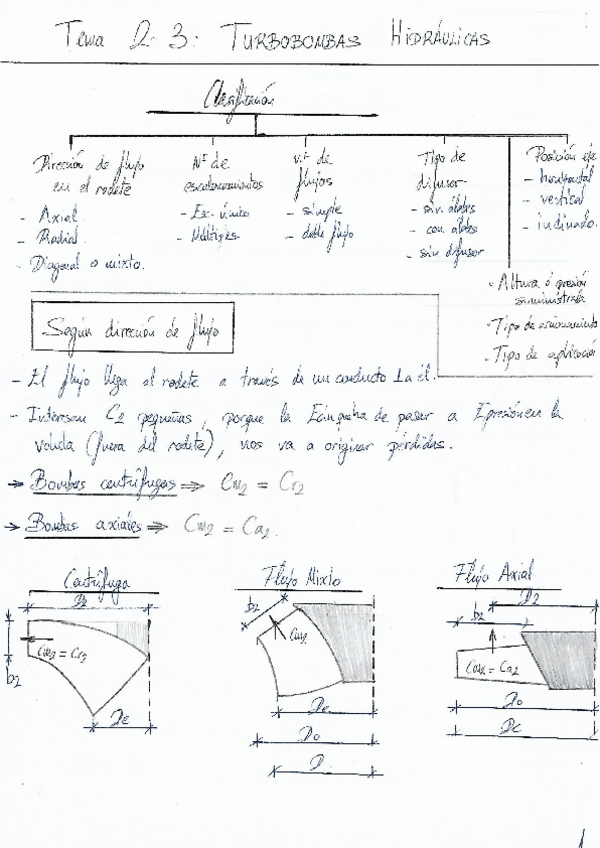 Tema 2.3: TURBOBOMBAS HIDRÁULICAS
Clasificación
Dirección de flujo
en el rodete
- Axial
- Radial
- Diagonal o mixto.
Nº de
escalonamientos
- Esc. único
- Múltiples
nº de
flujos
- simple
- doble flujo
Tipo de
difusor
- sin álabes
- con álabes
- sin difusor
Posición eje
- horizontal
- vertical
- inclinado.
- Altura ó presión
suministrada
- Tipo de accionamiento
- Tipo de aplicación
Según dirección de flujo
- El flujo llega al rodete a través de un conducto ⊥ a él.
- Interesan C2 pequeñas, porque la Ecinética de pasar a Epresión en la
voluta (fuera del rodete), nos va a originar pérdidas.
→ Bombas centrífugas ⇒ Cm2 = Cr2
→ Bombas axiales ⇒ Cm2 = Ca2.
Centrífuga
D2
Cm2 = Cr2
b2
De
Flujo Mixto
b2
Cm2
De
Do
D
Flujo Axial
D2
b2
Cm2 = Ca2
Do
De
1